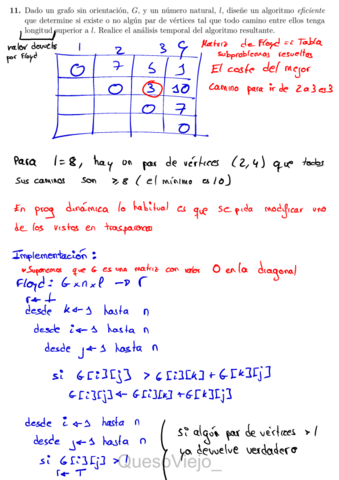 11. Dado un grafo sin orientación, G, y un número natural, l, diseñe un algoritmo eficiente
que determine si existe o no algún par de vértices tal que todo camino entre ellos tenga
longitud superior a l. Realice el análisis temporal del algoritmo resultante.
valor devuelto
por Floyd
1 2 3 4
0 7 5 1
0 3 10
0 7
0
Matriz de Floyd == Tabla
subproblemas resueltos
El coste del mejor
camino para ir de 2 a 3 es 3
Para l=8, hay un par de vértices (2,4) que todos
sus caminos son ≥8 (el mínimo es 10)
En prog dinámica lo habitual es que se pida modificar uno
de los vistos en trasparencias
Implementación:
Suponemos que G es una matriz con valor 0 en la diagonal
Floyd: G x n x l → r
r ← ⊥
desde k ← 1 hasta n
desde i ← 1 hasta n
desde j ← 1 hasta n
si G[i][j] > G[i][k] + G[k][j]
G[i][j] ← G[i][k] + G[k][j]
desde i ← 1 hasta n
desde j ← 1 hasta n
si G[i][j] > l
r ← T
Si algún par de vértices > l
ya devuelve verdadero
QuesoViejo_